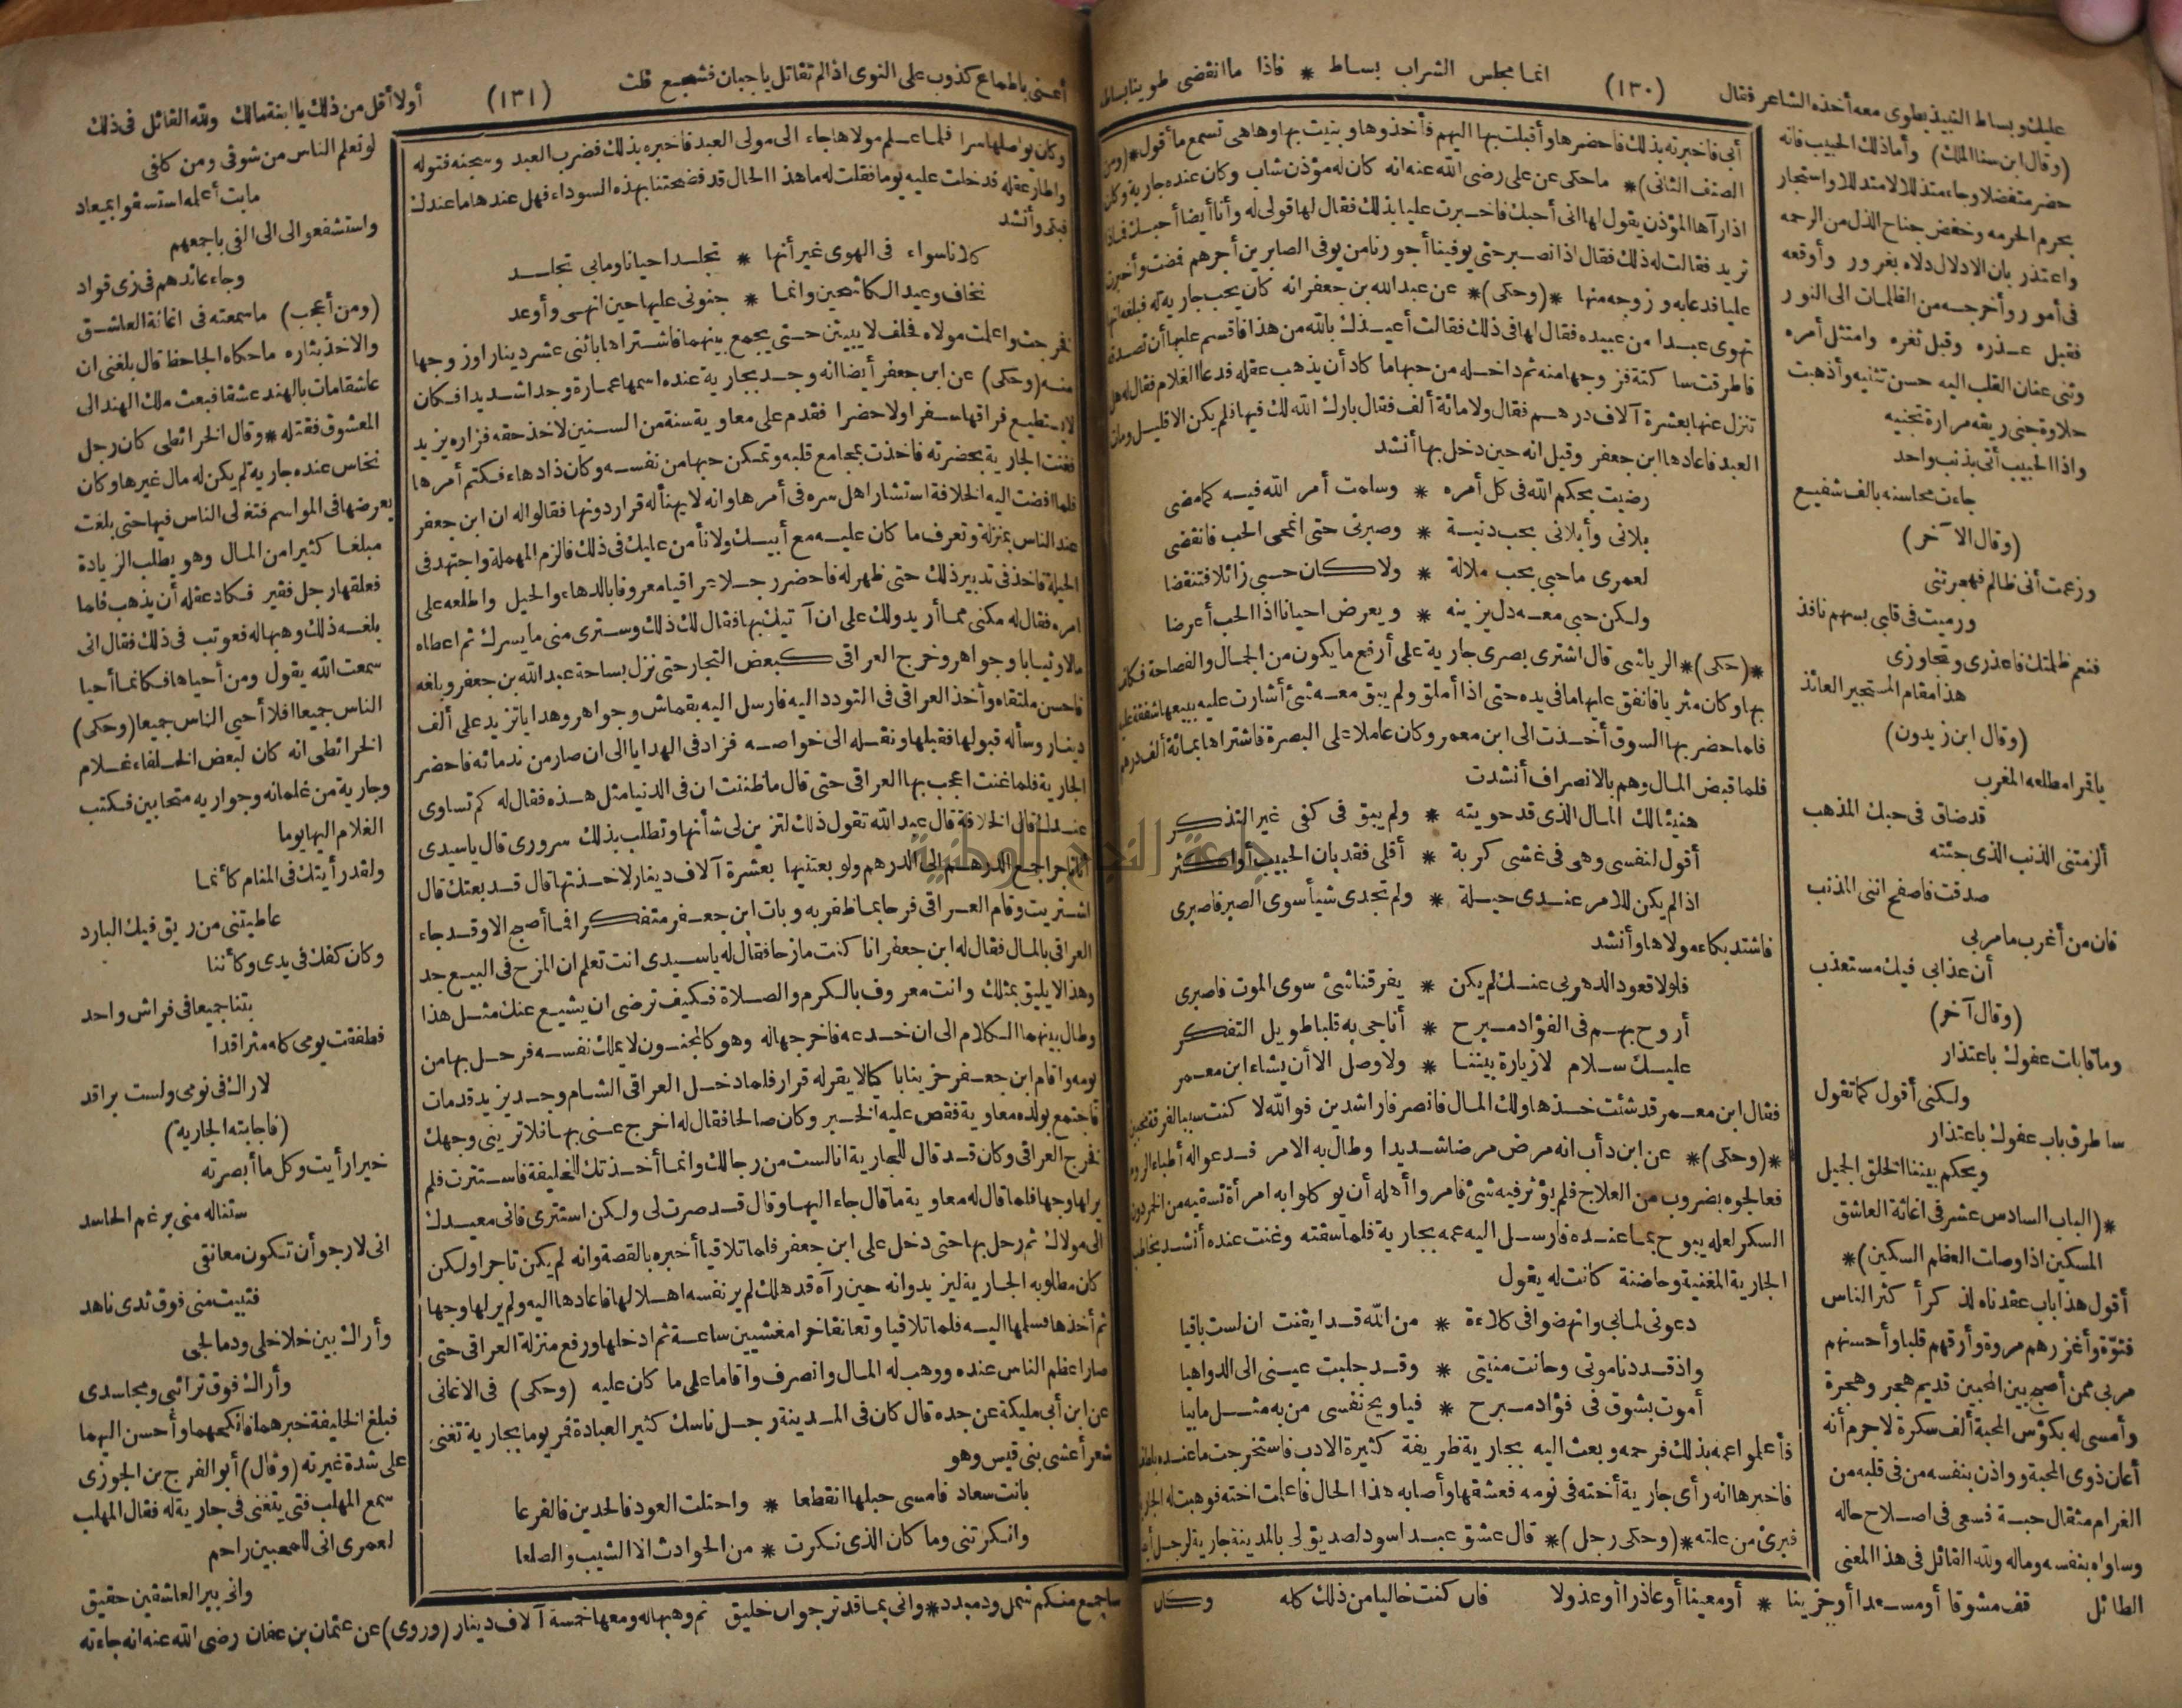 انما مجلس الشراب بساط * فاذا ما انقضى طوينا بساط
(١٣٠)
عليك وبساط النبيذ يطوى معه أخذه الشاعر فقال
أبى فاخبرته بذلك فاحضرها وأقبلت بها اليهم فأخذوها وبنيت بها وها هى تسمع ما أقول * (ومن
الصنف الثانى) * ما حكى عن على رضى الله عنه انه كان له مؤذن شاب وكان عنده جارية وكان
اذا رآها المؤذن يقول لها انى أحبك فاخبرت عليا بذلك فقال لها قولى له وأنا أيضا أحبك فماذا
تريد فقالت له ذلك فقال اذا نصبر حتى يوفينا أجورنا من يوفى الصابرين أجرهم فمضت وأخبرت
عليا فدعا به وزوجه منها * (وحكى) * عن عبد الله بن جعفر انه كان يحب جارية له فبلغه انها
تهوى عبدا من عبيده فقال لها فى ذلك فقالت أعيذك بالله من هذا فاقسم عليها أن تصدقه
فاطرقت ساكتة فزوجها منه ثم داخله من حبها ما كاد أن يذهب عقله فدعا الغلام فقال له هل
تنزل عنها بعشرة آلاف درهم فقال ولا مائة ألف فقال بارك الله لك فيها فلم يكن الا قليل ومات
العبد فاعادها ابن جعفر وقيل انه حين دخل بها أنشد
رضيت بحكم الله فى كل أمره * وسلمت أمر الله فيه كما مضى
بلانى وأبلانى بحب دنية * وصبرنى حتى انمحى الحب فانقضى
لعمرى ما حبى بحب ملالة * ولا كان حبى زائلا فتنقضا
ولكن حبى معه دل يزينه * ويعرض احيانا اذا الحب أعرضا
* (حكى) * الرياشى قال اشترى بصرى جارية على أرفع ما يكون من الجمال والفصاحة فكلف
بها وكان مثريا فانفق عليها ما فى يده حتى اذا أملق ولم يبق معه شئ أشارت عليه ببيعها شفقة عليه
فلما حضر بها السوق أخذت الى ابن معمر وكان عاملا على البصرة فاشتراها بمائة ألف درهم
فلما قبض المال وهم بالانصراف أنشدت
هنيئا لك المال الذى قد حويته * ولم يبق فى كفى غير التذكر
أقول لنفسى وهى فى غشى كربة * أقلى فقد بان الحبيب أو اكثر
اذا لم يكن للامر عندى حيلة * ولم تجدى شيأ سوى الصبر فاصبرى
فاشتد بكاء مولاها وأنشد
فلولا قعود الدهر بى عنك لم يكن * يفرقنا شئ سوى الموت فاصبرى
أروح بهم فى الفؤاد مبرح * أناجى به قلبا طويل التفكر
عليك سلام لا زيارة بيننا * ولا وصل الا أن يشاء ابن معمر
فقال ابن معمر قد شئت خذها ولك المال فانصرفا راشدين فوالله لا كنت سببا لفرقة محبين
* (وحكى) * عن ابن دأب انه مرض مرضا شديدا وطال به الامر فدعوا له أطباء الروم
فعالجوه بضروب من العلاج فلم يؤثر فيه شئ فامروا أهله أن يوكلوا به امرأة تسقيه من الخمر دون
السكر لعله يبوح بما عنده فارسل اليه عمه بجارية فلما سقته وغنت عنده أنشد يخاطب
الجارية المغنية وحاضنة كانت له يقول
دعونى لمابى وانهضوا فى كلاءة * من الله قد ايقنت ان لست باقيا
واذ قد دنا موتى وحانت منيتى * وقد جلبت عينى الى الدواهيا
أموت بشوق فى فؤاد مبرح * فيا ويح نفسى من به مثل ما بيا
فأعلموا عمه بذلك فرحمه وبعث اليه بجارية ظريفة كثيرة الادب فاستخرجت ما عنده بلطف
فاخبرها انه رأى جارية أخته فى نومه فعشقها وأصابه هذا الحال فاعلمت اخته فوهبت له الجارية
فبرئ من علته * (وحكى رجل) * قال عشق عبد اسود لصديق لى بالمدينة جارية لرجل
(وقال ابن سنا الملك) وأما ذلك الحبيب فانه
حضر متفضلا وجاء متذللا لا متدللا واستجار
بحرم الحرمه وخفض جناح الذل من الرحمه
واعتذر بان الادلال دلاه بغرور وأوقعه
فى أمور وأخرجه من الظلمات الى النور
فقبل عذره وقبل ثغره وامتثل أمره
وثنى عنان القلب اليه حسن تثنيه وأذهبت
حلاوة جنى ريقه مرارة تجنيه
واذا الحبيب أتى بذنب واحد
جاءت محاسنه بالف شفيع
(وقال الآخر)
وزعمت أنى ظالم فهجرتنى
ورميت فى قلبى بسهم نافذ
فنعم ظلمتك فاعذرى وتجاوزى
هذا مقام المستجير العائذ
(وقال ابن زيدون)
يا قمرا مطلعه المغرب
قد ضاق فى حبك المذهب
ألزمتنى الذنب الذى جئته
صدقت فاصفح اننى المذنب
فان من أغرب ما مر بى
أن عذابى فيك مستعذب
(وقال آخر)
وما قابلت عفوك باعتذار
ولكنى أقول كما تقول
سا طرق باب عفوك باعتذار
ويحكم بيننا الخلق الجميل
* (الباب السادس عشر فى اغاثة العاشق
المسكين اذا وصلت العظم السكين) *
أقول هذا باب عقدناه لذكر أكثر الناس
فتوة وأغزرهم مروة وأرقهم قلبا وأحسنهم
مربى ممن أصبح بين المحبين قديم هجر وهجرة
وأمسى له بكؤس المحبة ألف سكرة لا جرم أنه
أعان ذوى المحبة وواذن بنفسه من فى قلبه من
الغرام مثقال حبة فسعى فى اصلاح حاله
وساواه بنفسه وماله ولله القائل فى هذا المعنى
الطائل قف مشوقا أو مسعدا أو حزينا * أو معينا أو عاذرا أو عذولا فان كنت خاليا من ذلك كله وكان
أعنى باطماع كذوب على النوى اذا لم تقاتل يا جبان فشجع قلت
(١٣١)
أولا أقل من ذلك يا ابنة مالك ولله القائل فى ذلك
وكان يواصلها سرا فلما علم مولاها جاء الى مولى العبد فاخبره بذلك فضرب العبد وسجنه فتوله
واطار عقله فدخلت عليه يوما فقلت له ما هذا الحال قد فضحتنا بهذه السوداء فهل عندها ما عندك
فبكى وأنشد
كلانا سواء فى الهوى غير أنها * تجلد احيانا وما بى تجلد
تخاف وعيد الكاشحين وانما * جنونى عليها حين انهى وأوعد
فخرجت واعلمت مولاه فحلف لا يبيتن حتى يجمع بينهما فاشتراها باثنى عشر دينارا وزوجها
منه (وحكى) عن ابن جعفر أيضا انه وجد بجارية عنده اسمها عمارة وجدا شديدا فكان
لا يستطيع فراقها سفرا ولا حضرا فقدم على معاوية سنة من السنين لاخذ حقه فزاره يزيد
فغنت الجارية بحضرته فاخذت بمجامع قلبه وتمكن حبها من نفسه وكان ذا دهاء فكتم أمرها
فلما افضت اليه الخلافة استشار اهل سره فى أمرها وانه لا يهنأ له قرار دونها فقالوا له ان ابن جعفر
عند الناس بمنزلة وتعرف ما كان عليه مع أبيك ولا نأمن عليك فى ذلك فالزم المهملة واجتهد فى
الحيلة فاخذ فى تدبير ذلك حتى ظهر له فاحضر رجلا عراقيا معروفا بالدهاء والحيل واطلعه على
امره فقال له مكنى مما أريد ولك على ان آتيك بها فقال لك ذلك وسترى منى ما يسرك ثم اعطاه
مالا وثيابا وجواهر وخرج العراقى كبعض التجار حتى نزل بساحة عبد الله بن جعفر وبلغه
فاحسن ملتقاه وأخذ العراقى فى التودد اليه فارسل اليه بقماش وجواهر وهدايا تزيد على ألف
دينار وسأله قبولها فقبلها ونقله الى خواصه فزاد فى الهدايا الى ان صار من ندمائه فاحضر
الجارية فلما غنت اعجب بها العراقى حتى قال ما ظننت ان فى الدنيا مثل هذه فقال له كم تساوى
عندك قال الخلافة قال عبد الله تقول ذلك لتزين لى شأنها وتطلب بذلك سرورى قال يا سيدى
أنا تاجر اجمع الدرهم الى الدرهم ولو بعتنيها بعشرة آلاف دينار لاخذتها قال قد بعتك قال
اشتريت وقام العراقى فرحا بما ظفر به وبات ابن جعفر متفكرا فما أصبح الا وقد جاء
العراقى بالمال فقال له ابن جعفر انا كنت مازحا فقال له يا سيدى انت تعلم ان المزح فى البيع جد
وهذا لا يليق بمثلك وانت معروف بالكرم والصلاة فكيف ترضى ان يشيع عنك مثل هذا
وطال بينهما الكلام الى ان خدعه فاخرجها له وهو كالمجنون لا يملك نفسه فرحل بها من
يومه واقام ابن جعفر حزينا باكيا لا يقر له قرار فلما دخل العراقى الشام وجد يزيد قد مات
فاجتمع بولده معاوية فقص عليه الخبر وكان صالحا فقال له اخرج عنى بها فلا ترينى وجهك
فخرج العراقى وكان قد قال للجارية انا لست من رجالك وانما أخذتك للخليفة فاستترت فلم
ير لها وجها فلما قال له معاوية ما قال جاء اليها وقال قد صرت لى ولكن استترى فانى معيدك
الى مولاك ثم رحل بها حتى دخل على ابن جعفر فلما تلاقيا أخبره بالقصة وانه لم يكن تاجرا ولكن
كان مطلوبه الجارية ليزيد وانه حين رآه قد هلك لم ير نفسه اهلا لها فاعادها اليه ولم ير لها وجها
ثم أخذها فسلمها اليه فلما تلاقيا وتعانقا خرا مغشيين ساعة ثم ادخلها ورفع منزلة العراقى حتى
صار اعظم الناس عنده ووهب له المال وانصرف واقاما على ما كان عليه (وحكى) فى الاغانى
عن ابن أبى مليكة عن جده قال كان فى المدينة رجل ناسك كثير العبادة فمر يوما بجارية تغنى
شعر أعشى بنى قيس وهو
بانت سعاد فامسى حبلها انقطعا * واحتلت العود فالجدين فالفرعا
وانكرتنى وما كان الذى نكرت * من الحوادث الا الشيب والصلعا
لو تعلم الناس من شوقى ومن كلفى
ما بت أعلمه استسقوا بميعاد
واستشفعوا لى الى الفى باجمعهم
وجاء عائدهم فى زى قواد
(ومن أعجب) ما سمعته فى اغاثة العاشق
والاخذ بثاره ما حكاه الجاحظ قال بلغنى ان
عاشقا مات بالهند عشقا فبعث ملك الهند الى
المعشوق فقتله * وقال الخرائطى كان رجل
نخاس عنده جارية لم يكن له مال غيرها وكان
يعرضها فى المواسم فتغلى الناس فيها حتى بلغت
مبلغا كثيرا من المال وهو يطلب الزيادة
فعلقها رجل فقير فكاد عقله أن يذهب فلما
بلغه ذلك وهبها له فعوتب فى ذلك فقال انى
سمعت الله يقول ومن أحياها فكانما أحيا
الناس جميعا افلا أحيى الناس جميعا (وحكى)
الخرائطى انه كان لبعض الخلفاء غلام
وجارية من غلمانه وجواريه متحابين فكتب
الغلام اليها يوما
ولقد رأيتك فى المنام كأنما
عاطيتنى من ريق فيك البارد
وكان كفك فى يدى وكأننا
بتنا جميعا فى فراش واحد
فطفقت يومى كله متراقدا
لاراك فى نومى ولست براقد
(فاجابته الجارية)
خيرا رأيت وكل ما أبصرته
ستناله منى برغم الحاسد
انى لارجو أن تكون معانقى
فتبيت منى فوق ثدى ناهد
وأراك بين خلاخلى ودمالجى
وأراك فوق ترائبى ومجاسدى
فبلغ الخليفة خبرهما فانكحهما وأحسن اليهما
على شدة غيرته (وقال) أبو الفرج بن الجوزى
سمع المهلب فتى يتغنى فى جارية له فقال المهلب
لعمرى انى للمحبين راحم
وانى ببر العاشقين حقيق
ساجمع منكم شمل ود مبدد * وانى بما قد ترجوان خليق ثم وهبها له ومعها خمسة آلاف دينار (وروى) عن عثمان بن عفان رضى الله عنه انه جاءته
جامعة النجاح الوطنية